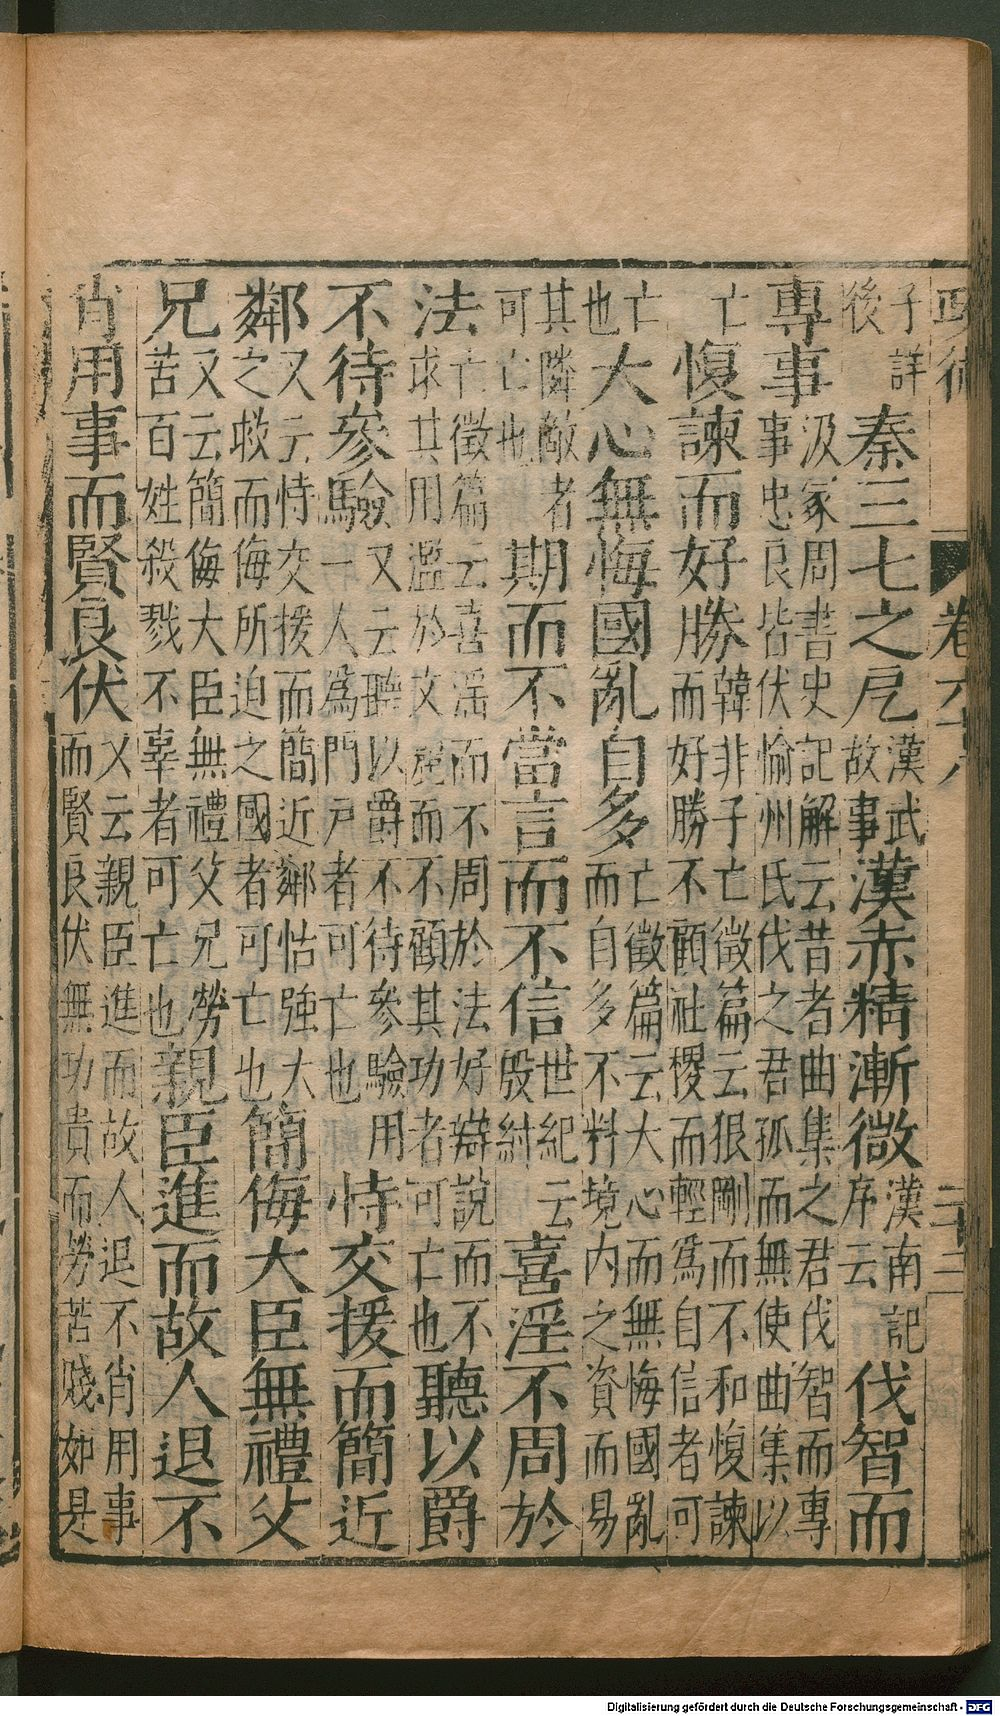 卷六十八 二十三
子詳後秦三七之戹漢武故事漢赤精漸微漢南記序云伐智而
專事汲冢周書史記解云昔者曲集之君伐智而專事忠良皆伏愉州氏伐之君孤而無使曲集以
亡愎諫而好勝韓非子亡徵篇云狠剛而不和愎諫而好勝不顧社稷而輕爲自信者可
亡也大心無悔國亂自多亡徵篇云大心而無悔國亂而自多不料境内之資而易
其隣敵者可亡也期而不當言而不信世紀云殷紂喜淫不周於
法亡徵篇云喜淫而不周於法好辯說而不求其用濫於文麗而不顧其功者可亡也聽以爵
不待參驗又云聽以爵不待參驗用一人爲門戸者可亡也恃交援而簡近
鄰又云恃交援而簡近鄰怙強大之救而侮所迫之國者可亡也簡侮大臣無禮父
兄又云簡侮大臣無禮父兄勞苦百姓殺戮不辜者可亡也親臣進而故人退不
肖用事而賢良伏又云親臣進而故人退不肖用事而賢良伏無功貴而勞苦賤如是
Digitalisierung gefördert durch die Deutsche Forschungsgemeinschaft - DFG